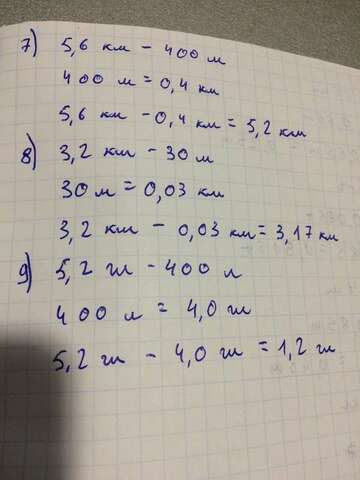 7) 5,6 км - 400 м
400 м = 0,4 км
5,6 км - 0,4 км = 5,2 км
8) 3,2 км - 30 м
30 м = 0,03 км
3,2 км - 0,03 км = 3,17 км
9) 5,2 гл - 400 л
400 л = 4,0 гл
5,2 гл - 4,0 гл = 1,2 гл